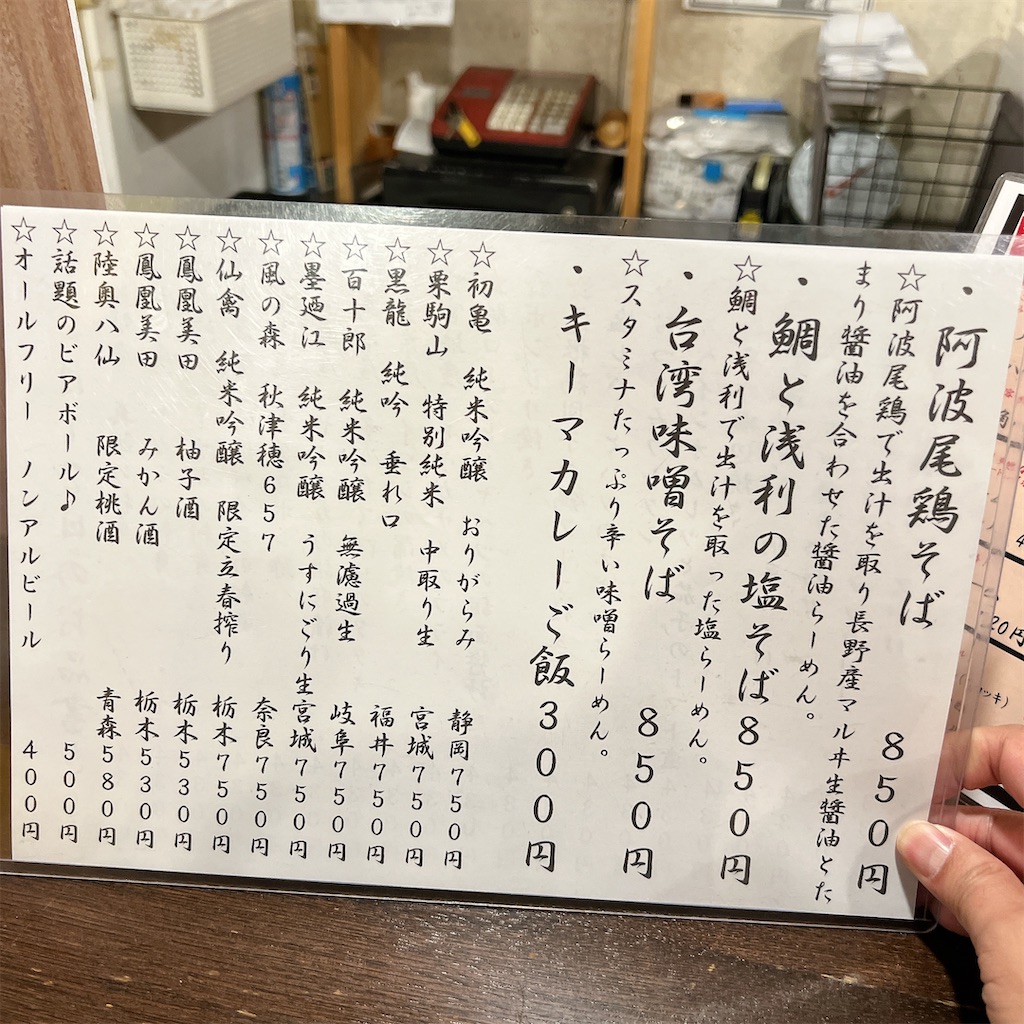 ・阿波尾鶏そば 850円
☆阿波尾鶏で出汁を取り長野産マルヰ生醤油とた
まり醤油を合わせた醤油らーめん。
・鯛と浅利の塩そば850円
☆鯛と浅利で出汁を取った塩らーめん。
・台湾味噌そば 850円
☆スタミナたっぷり辛い味噌らーめん。
・キーマカレーご飯300円
☆初亀 純米吟醸 おりがらみ 静岡750円
☆栗駒山 特別純米 中取り生 宮城750円
☆黒龍 純吟 垂れ口 福井750円
☆百十郎 純米吟醸 無濾過生 岐阜750円
☆墨廼江 純米吟醸 うすにごり生宮城750円
☆風の森 秋津穂657 奈良750円
☆仙禽 純米吟醸 限定立春搾り 栃木750円
☆鳳凰美田 柚子酒 栃木530円
☆鳳凰美田 みかん酒 栃木530円
☆陸奥八仙 限定桃酒 青森580円
☆話題のビアボール♪ 500円
☆オールフリー ノンアルビール 400円